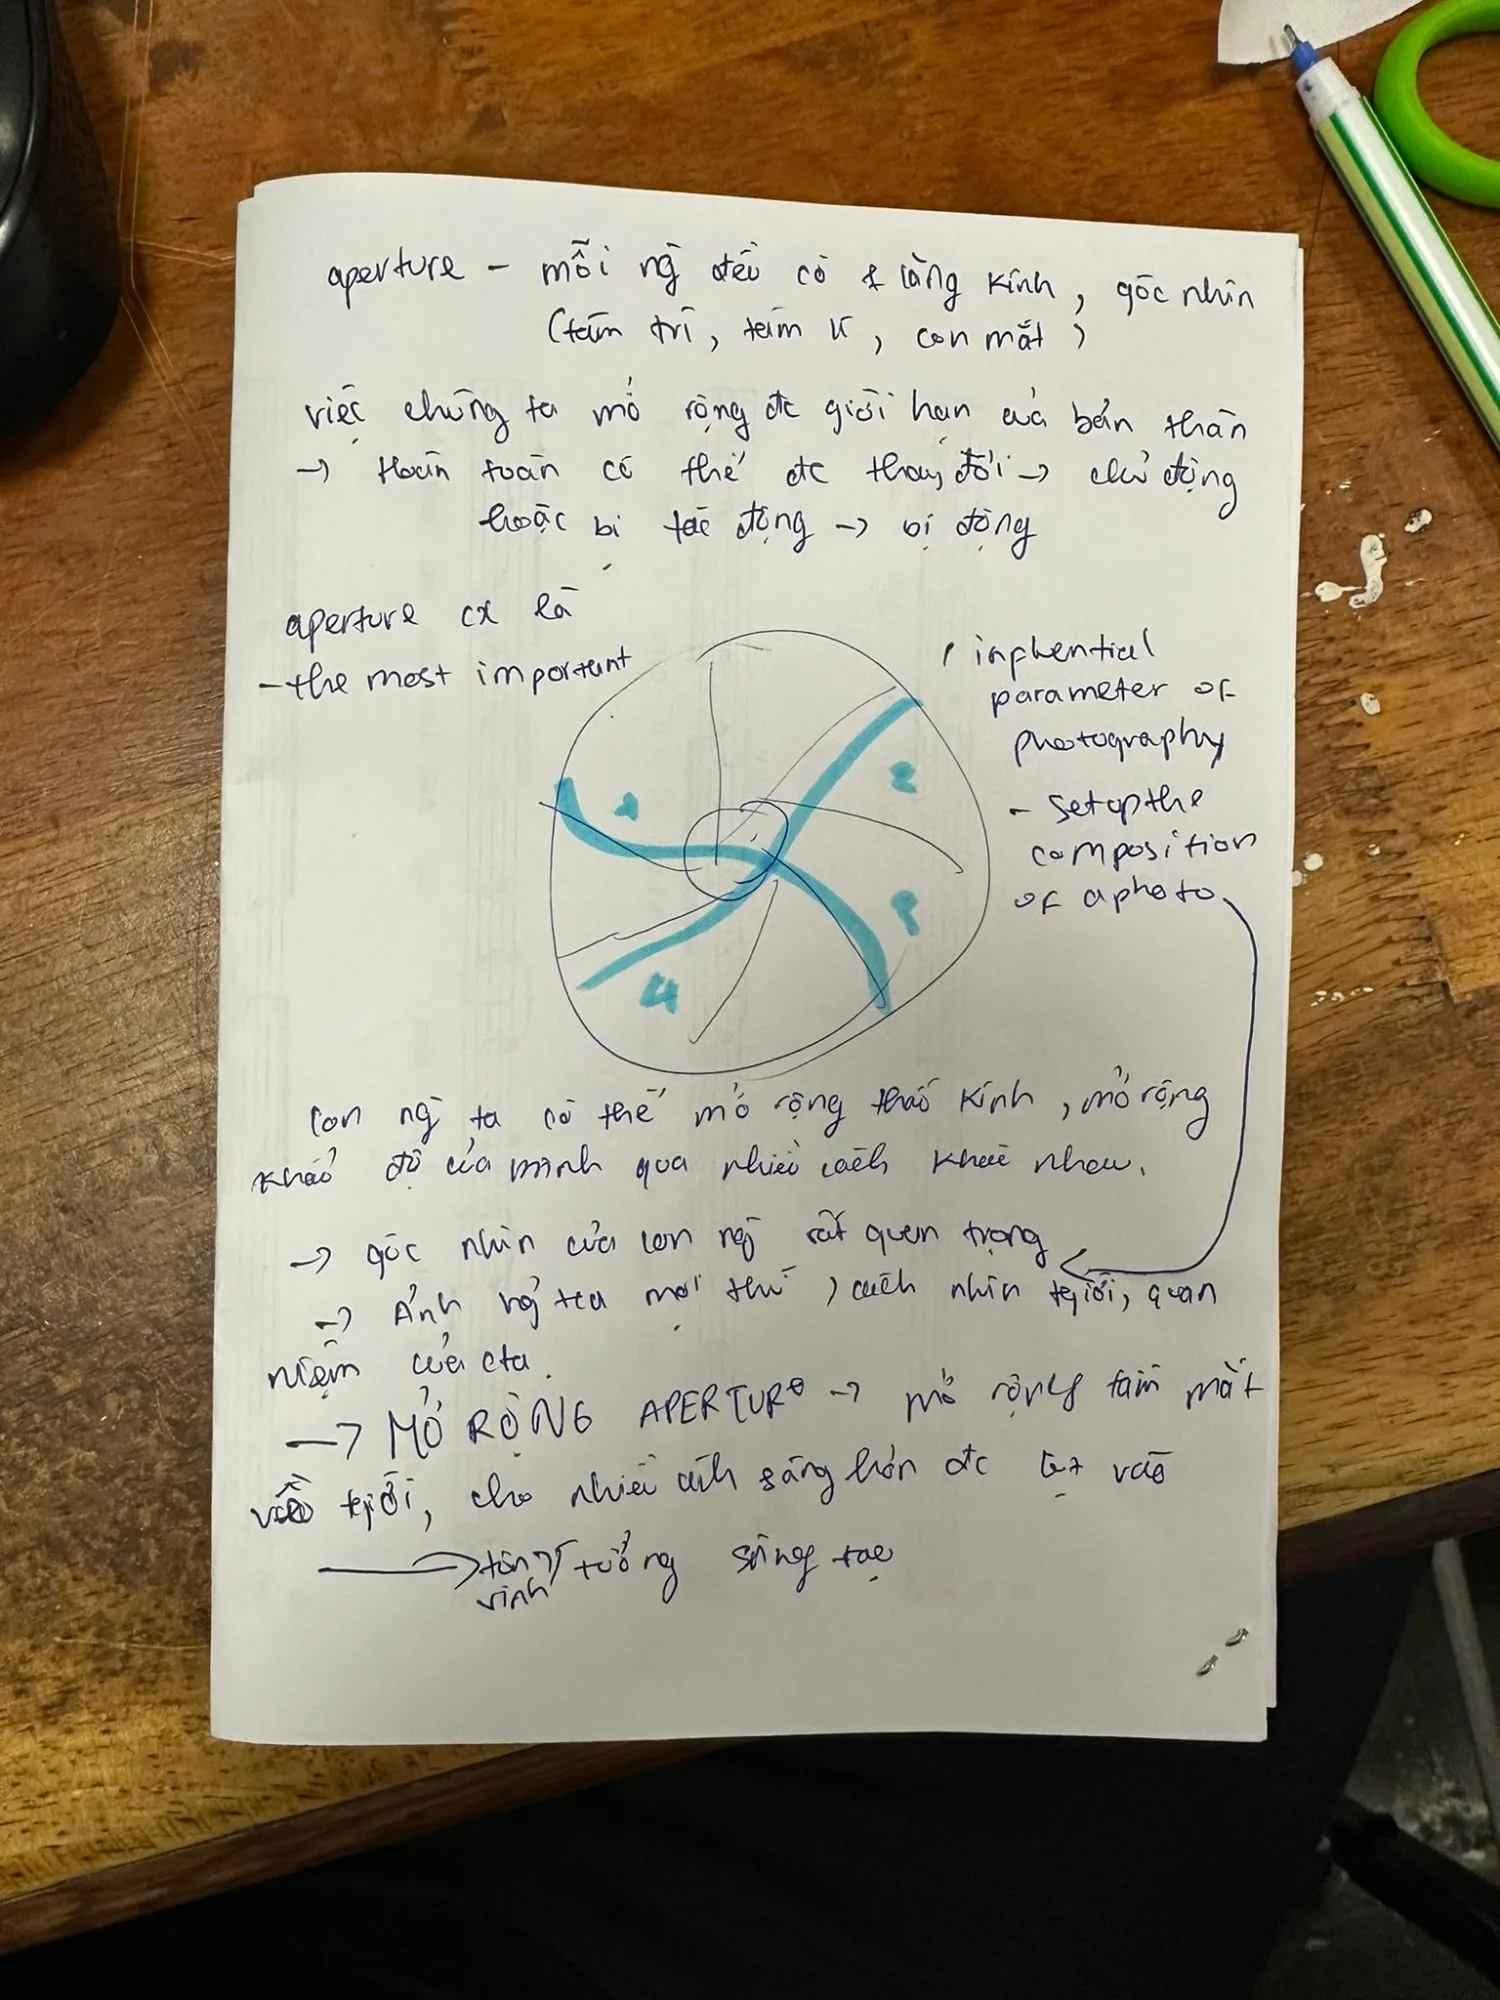 aperture - mỗi ng đều có 1 lăng kính, góc nhìn
(tâm trí, tâm lí, con mắt)
việc chúng ta mở rộng đc giới hạn của bản thân
→ hoàn toàn có thể đc thay đổi → chủ động
hoặc bị tác động → bị động
aperture cx là
- the most important
, influential
parameter of
photography
- set up the
composition
of a photo
1
2
3
4
Con ng ta có thể mở rộng thấu kính, mở rộng
khẩu độ của mình qua nhiều cách khác nhau.
→ góc nhìn của con ng rất quan trọng
→ Ảnh hg tới mọi thứ, cách nhìn tgiới, quan
niệm của cta.
→ MỞ RỘNG APERTURE → mở rộng tầm mắt
vào tgiới, cho nhiều ánh sáng hơn đc lọt vào
→ tôn vinh ý tưởng sáng tạo